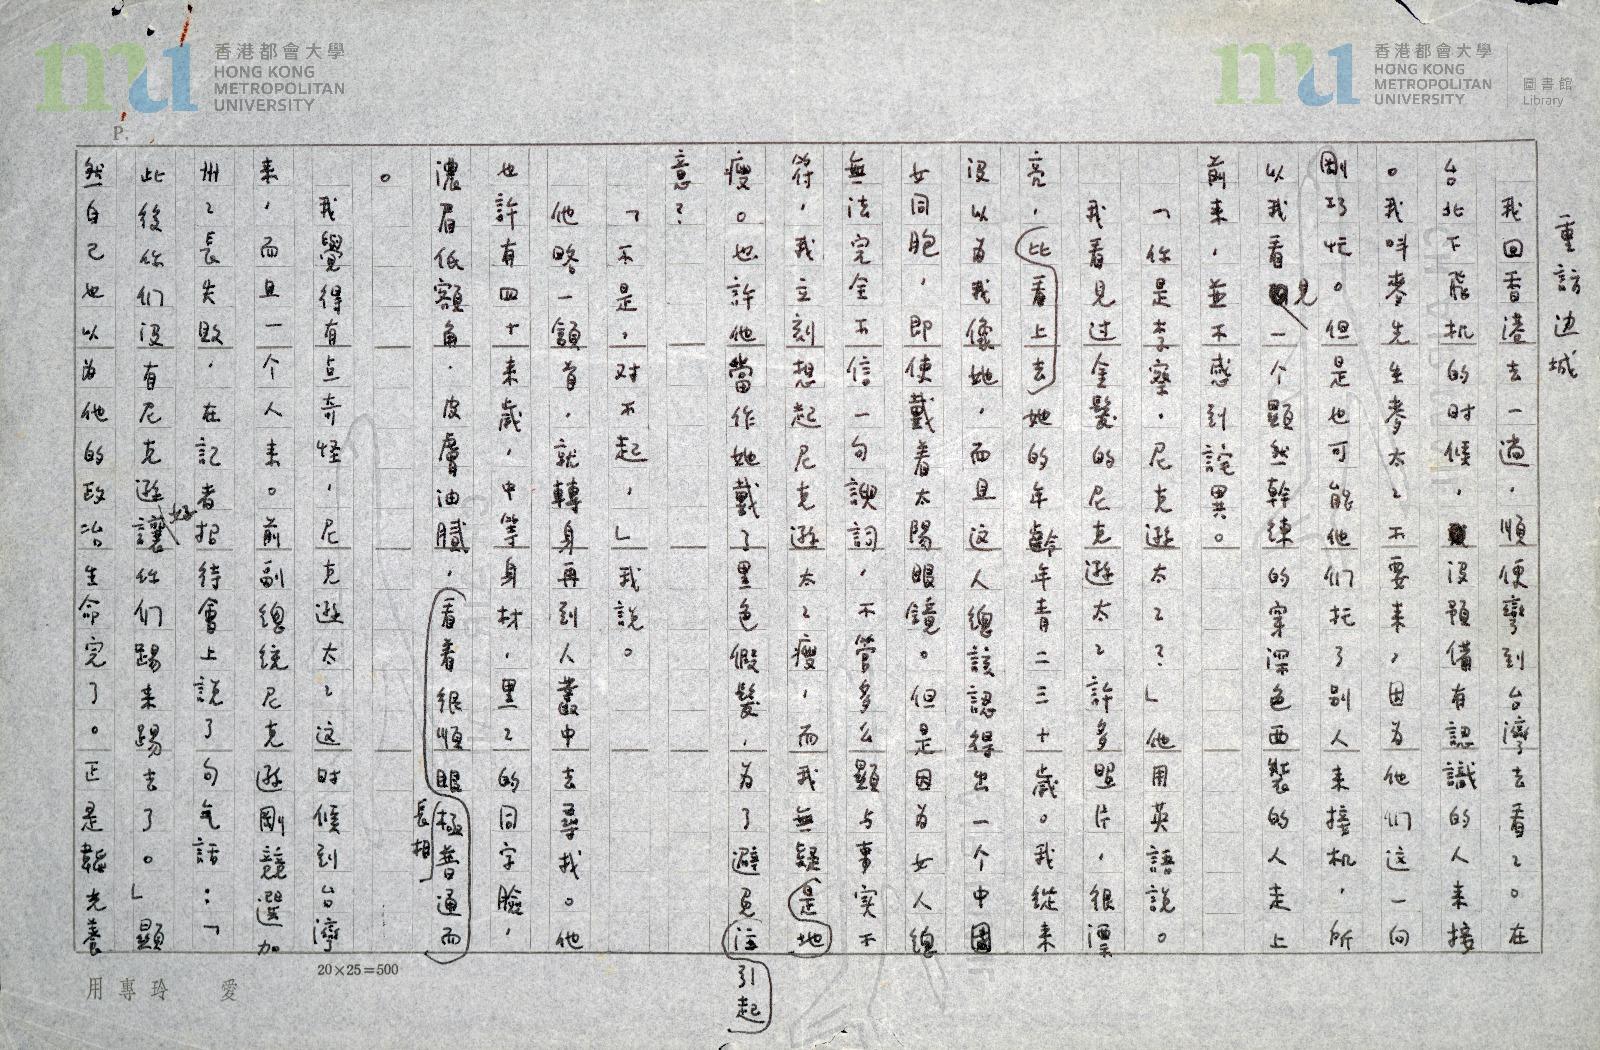 香港都會大學
HONG KONG
METROPOLITAN
UNIVERSITY
香港都會大學
HONG KONG
METROPOLITAN
UNIVERSITY
圖書館
Library
P.
重訪边城
我回香港去一趟，順便彎到台灣去看看。在
台北下飛机的时候，沒預備有認識的人來接
。我叫麥先生麥太々不要來，因为他们这一向
剛巧忙。但是也可能他们托了别人来接机，所
以我看見一个顯然幹練的穿深色西裝的人走上
前来，並不感到詫異。
「你是李察．尼克遜太々？」他用英語說。
我看見过金髮的尼克遜太々許多照片，很漂
亮，比看上去她的年齡年青二三十歲。我從来
没以为我像她，而且这人總該認得出一个中國
女同胞，即使戴着太陽眼鏡。但是因为女人總
無法完全不信一句諛詞，不管多么顯与事实不
符，我立刻想起尼克遜太々瘦，而我無疑是地
瘦。也許他當作她戴了黑色假髮，为了避免注
引起
意？
「不是，对不起，」我説。
他略一頷首，就轉身再到人叢中去尋找。他
也許有四十来歲，中等身材，黑々的同字臉，
濃眉低額角，皮膚油膩，看着很順眼極普通而
長相
。
我覺得有点奇怪，尼克遜太々这时候到台灣
来，而且一个人来。前副總統尼克遜剛競選加
州々長失敗，在記者招待會上說了句气話：「
此後你们沒有尼克遜讓你们踢来踢去了。」顯
好
然自己也以为他的政治生命完了。正是韜光養
20×25=500
愛　玲專用